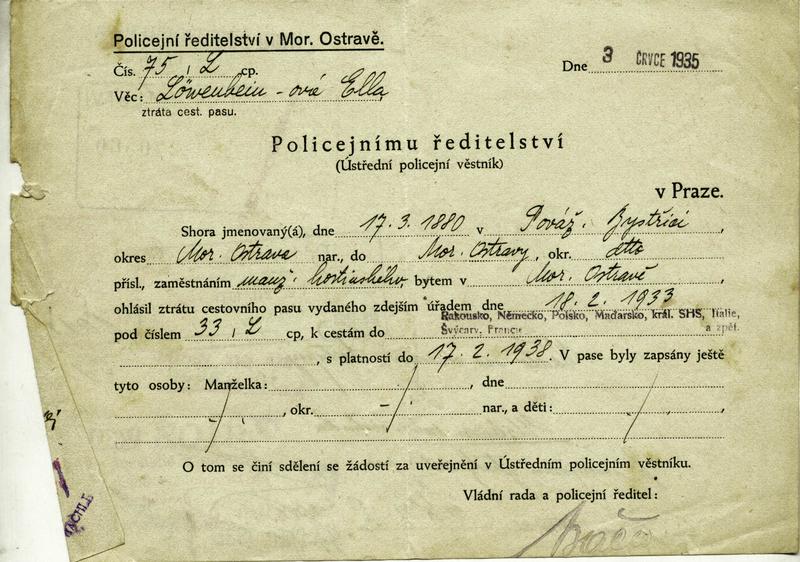 Policejní ředitelství v Mor. Ostravě.
Čís. 75, L cp.
Dne 3 ČRVCE 1935
Věc: Löwenbein-ová Ella
ztráta cest. pasu.
Policejnímu ředitelství
(Ústřední policejní věstník)
v Praze.
Shora jmenovaný(á), dne 17.3.1880 v Považ. Bystřici,
okres Mor. Ostrava nar., do Mor. Ostravy, okr. dtto
přísl., zaměstnáním manž. hostinského, bytem v Mor. Ostravě,
ohlásil ztrátu cestovního pasu vydaného zdejším úřadem dne 18.2.1933
pod číslem 33, L cp, k cestám do Rakousko, Německo, Polsko, Maďarsko, král. SHS, Italie,
Švýcary, Francie a zpět.
, s platností do 17.2.1938. V pase byly zapsány ještě
tyto osoby: Manželka: , dne
, okr. nar., a děti:
O tom se činí sdělení se žádostí za uveřejnění v Ústředním policejním věstníku.
Vládní rada a policejní ředitel: